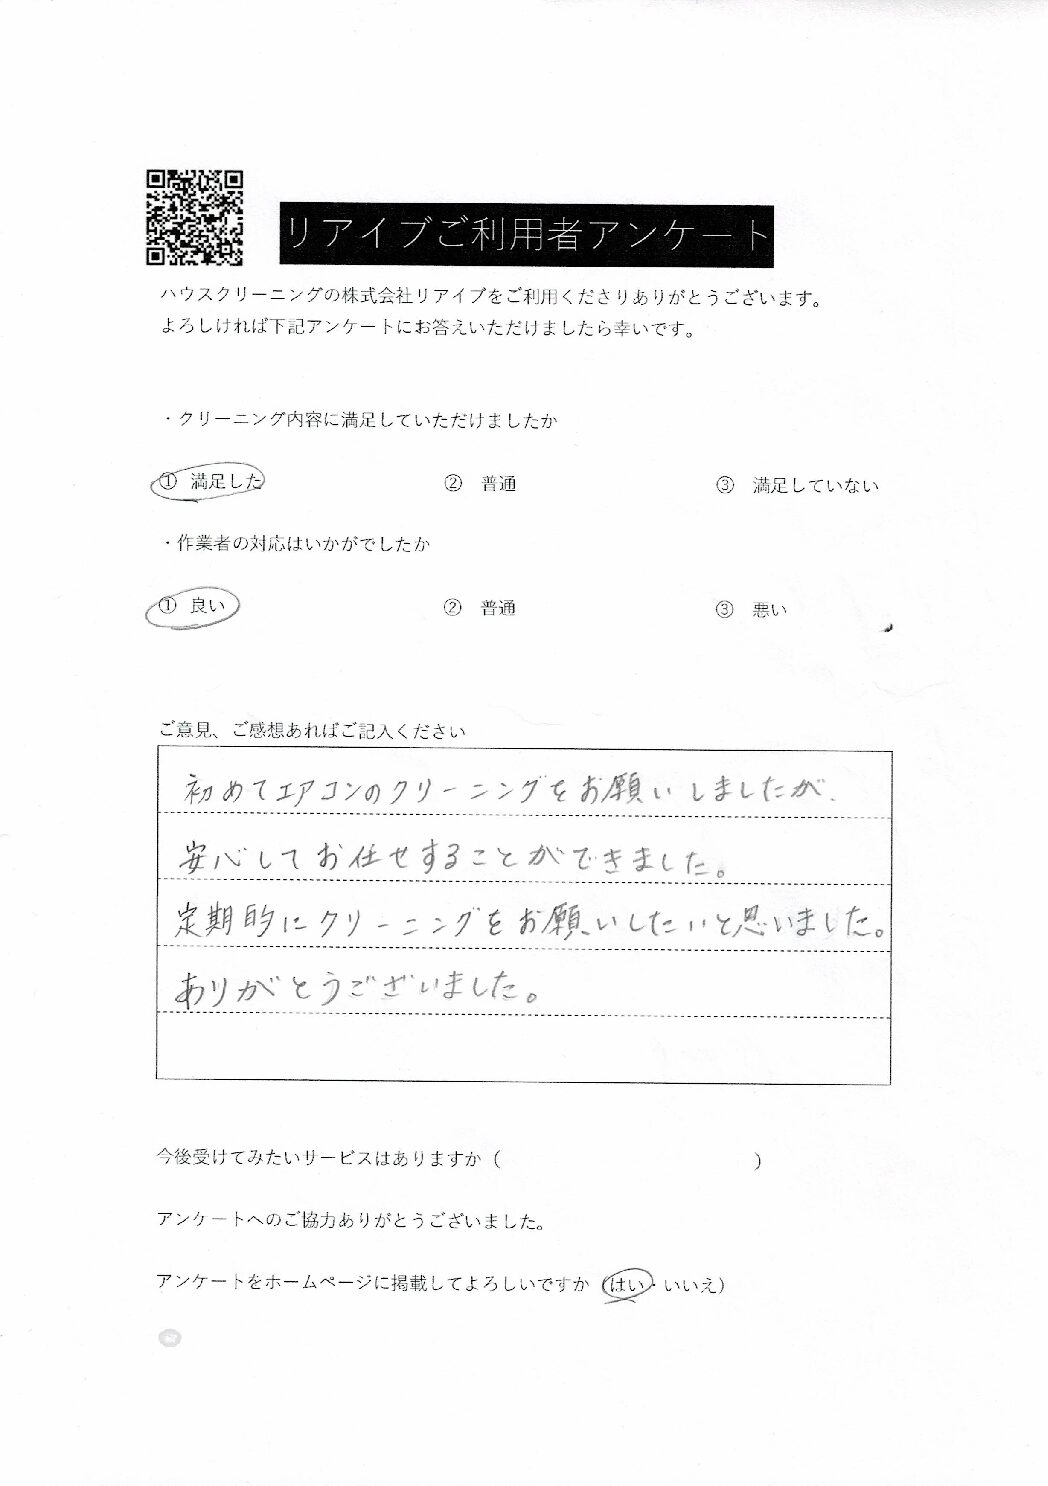 リアイブご利用者アンケート
ハウスクリーニングの株式会社リアイブをご利用くださりありがとうございます。
よろしければ下記アンケートにお答えいただけましたら幸いです。
・クリーニング内容に満足していただけましたか
① 満足した ② 普通 ③ 満足していない
・作業者の対応はいかがでしたか
① 良い ② 普通 ③ 悪い
ご意見、ご感想あればご記入ください
初めてエアコンのクリーニングをお願いしましたが、
安心してお任せすることができました。
定期的にクリーニングをお願いしたいと思いました。
ありがとうございました。
今後受けてみたいサービスはありますか（ ）
アンケートへのご協力ありがとうございました。
アンケートをホームページに掲載してよろしいですか（はい・いいえ）